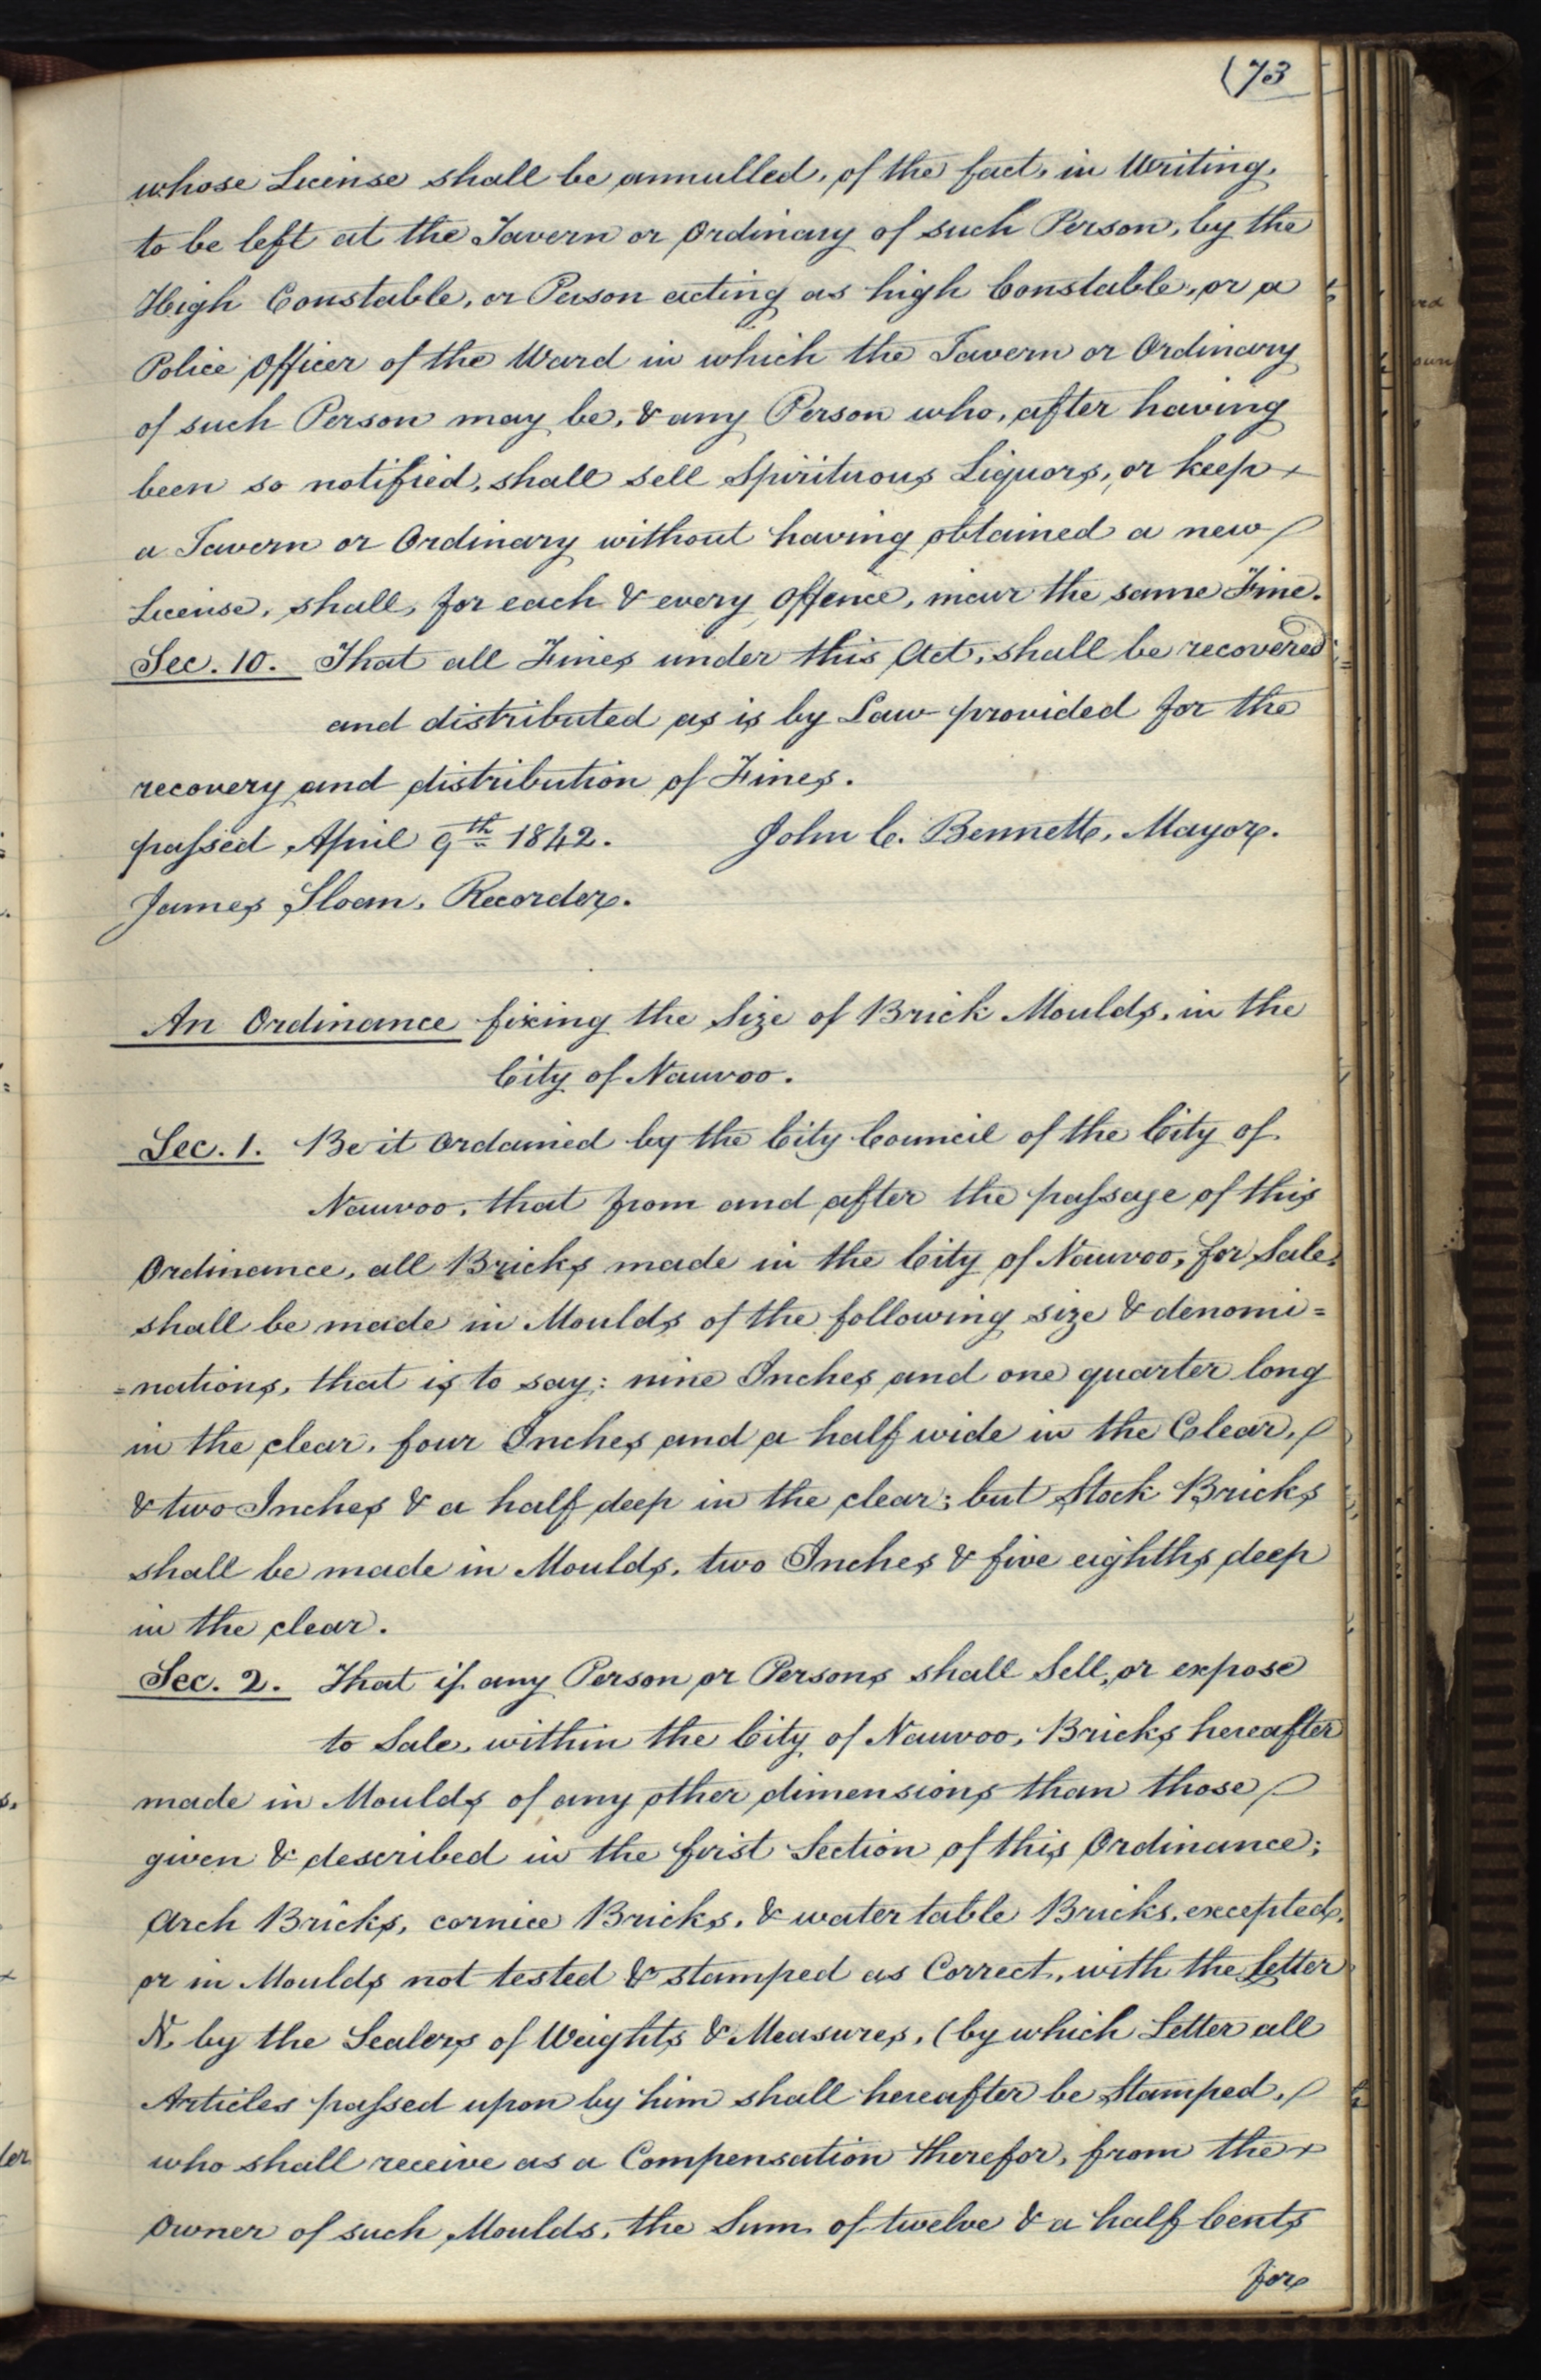 (73
whose License shall be annulled, of the fact, in Writing,
to be left at the Tavern or Ordinary of such Person, by the
High Constable, or Person acting as high Constable, or a
Police Officer of the Ward in which the Tavern or Ordinary
of such Person may be, & any Person who, after having
been so notified, shall sell Spirituous Liquors, or keep
a Tavern or Ordinary without having obtained a new
License, shall, for each & every Offence, incur the same Fine.
Sec. 10. That all Fines under this Act, shall be recovered
and distributed as is by Law provided for the
recovery and distribution of Fines.
passed April 9th 1842. John C. Bennett, Mayor.
James Sloan, Recorder.
An Ordinance fixing the Size of Brick Moulds, in the
City of Nauvoo.
Sec. 1. Be it Ordained by the City Council of the City of
Nauvoo, that from and after the passage of this
Ordinance, all Bricks made in the City of Nauvoo, for Sale,
shall be made in Moulds of the following size & denomi=
=nations, that is to say: nine Inches and one quarter long
in the clear, four Inches and a half wide in the Clear,
& two Inches & a half deep in the clear; but Stock Bricks
shall be made in Moulds, two Inches & five eighths deep
in the clear.
Sec. 2. That if any Person or Persons shall Sell, or expose
to Sale, within the City of Nauvoo, Bricks hereafter
made in Moulds of any other dimensions than those
given & described in the first Section of this Ordinance;
Arch Bricks, cornice Bricks, & water table Bricks, excepted,
or in Moulds not tested & stamped as Correct, with the Letter
N, by the Sealers of Weights & Measures, (by which Letter all
Articles passed upon by him shall hereafter be Stamped,
who shall receive as a Compensation therefor, from the
Owner of such Moulds, the Sum of twelve & a half Cents
for